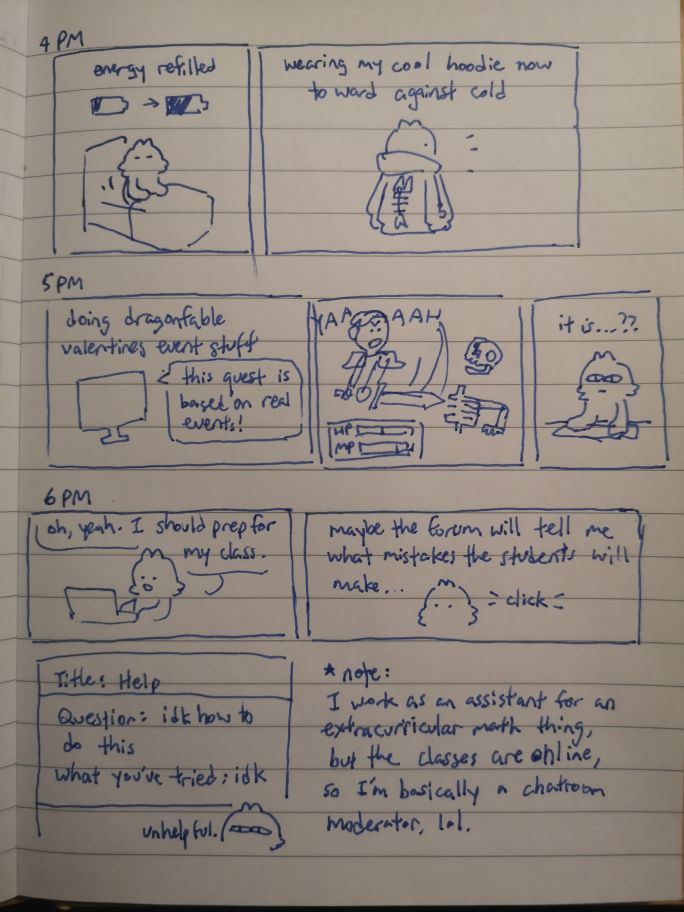 4 PM
energy refilled
wearing my cool hoodie now
to ward against cold
5 PM
doing dragonfable
valentines event stuff
this quest is
based on real
events!
YAAAAAAH
HP
MP
it is...??
6 PM
oh, yeah. I should prep for
my class.
maybe the forum will tell me
what mistakes the students will
make...
click
Title: Help
Question: idk how to
do this
what you've tried: idk
unhelpful.
* note:
I work as an assistant for an
extracurricular math thing,
but the classes are online,
so I'm basically a chatroom
moderator, lol.